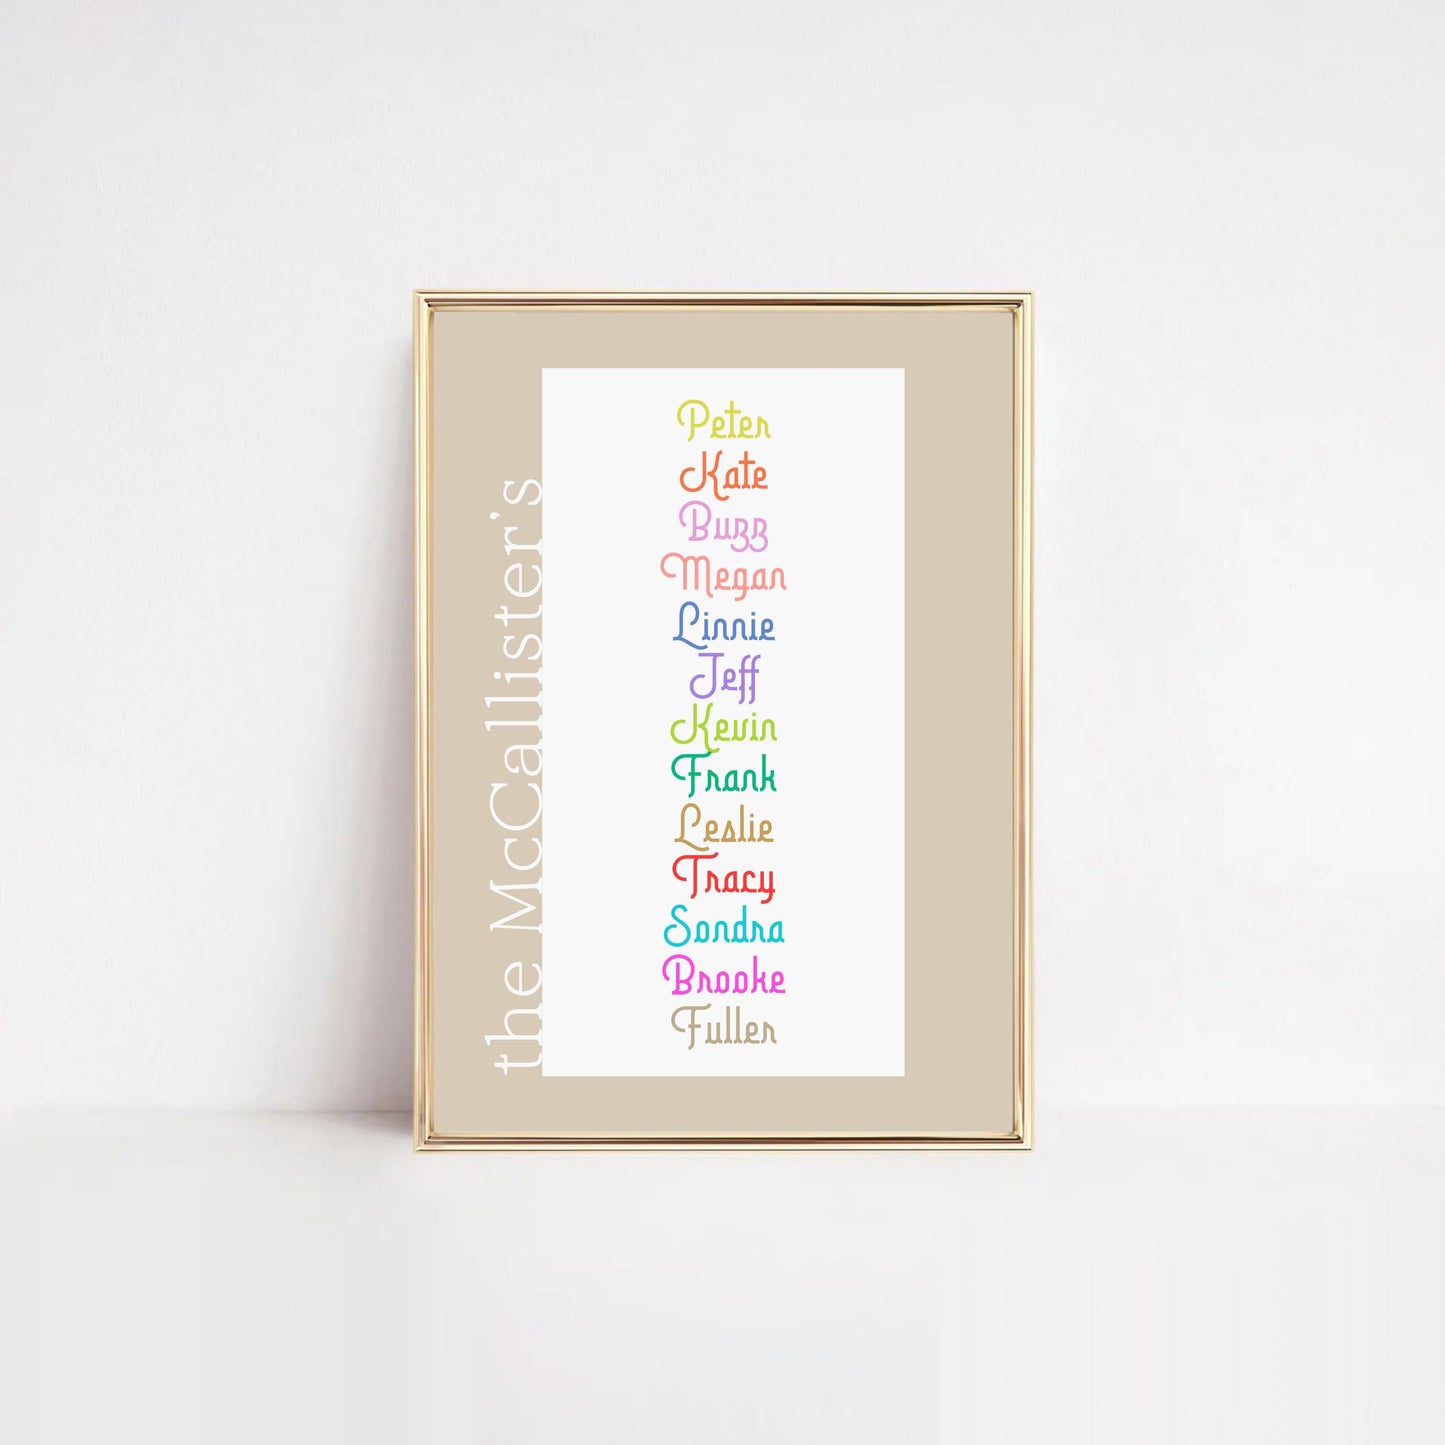 the McCallister's
Peter
Kate
Buzz
Megan
Linnie
Jeff
Kevin
Frank
Leslie
Tracy
Sondra
Brooke
Fuller